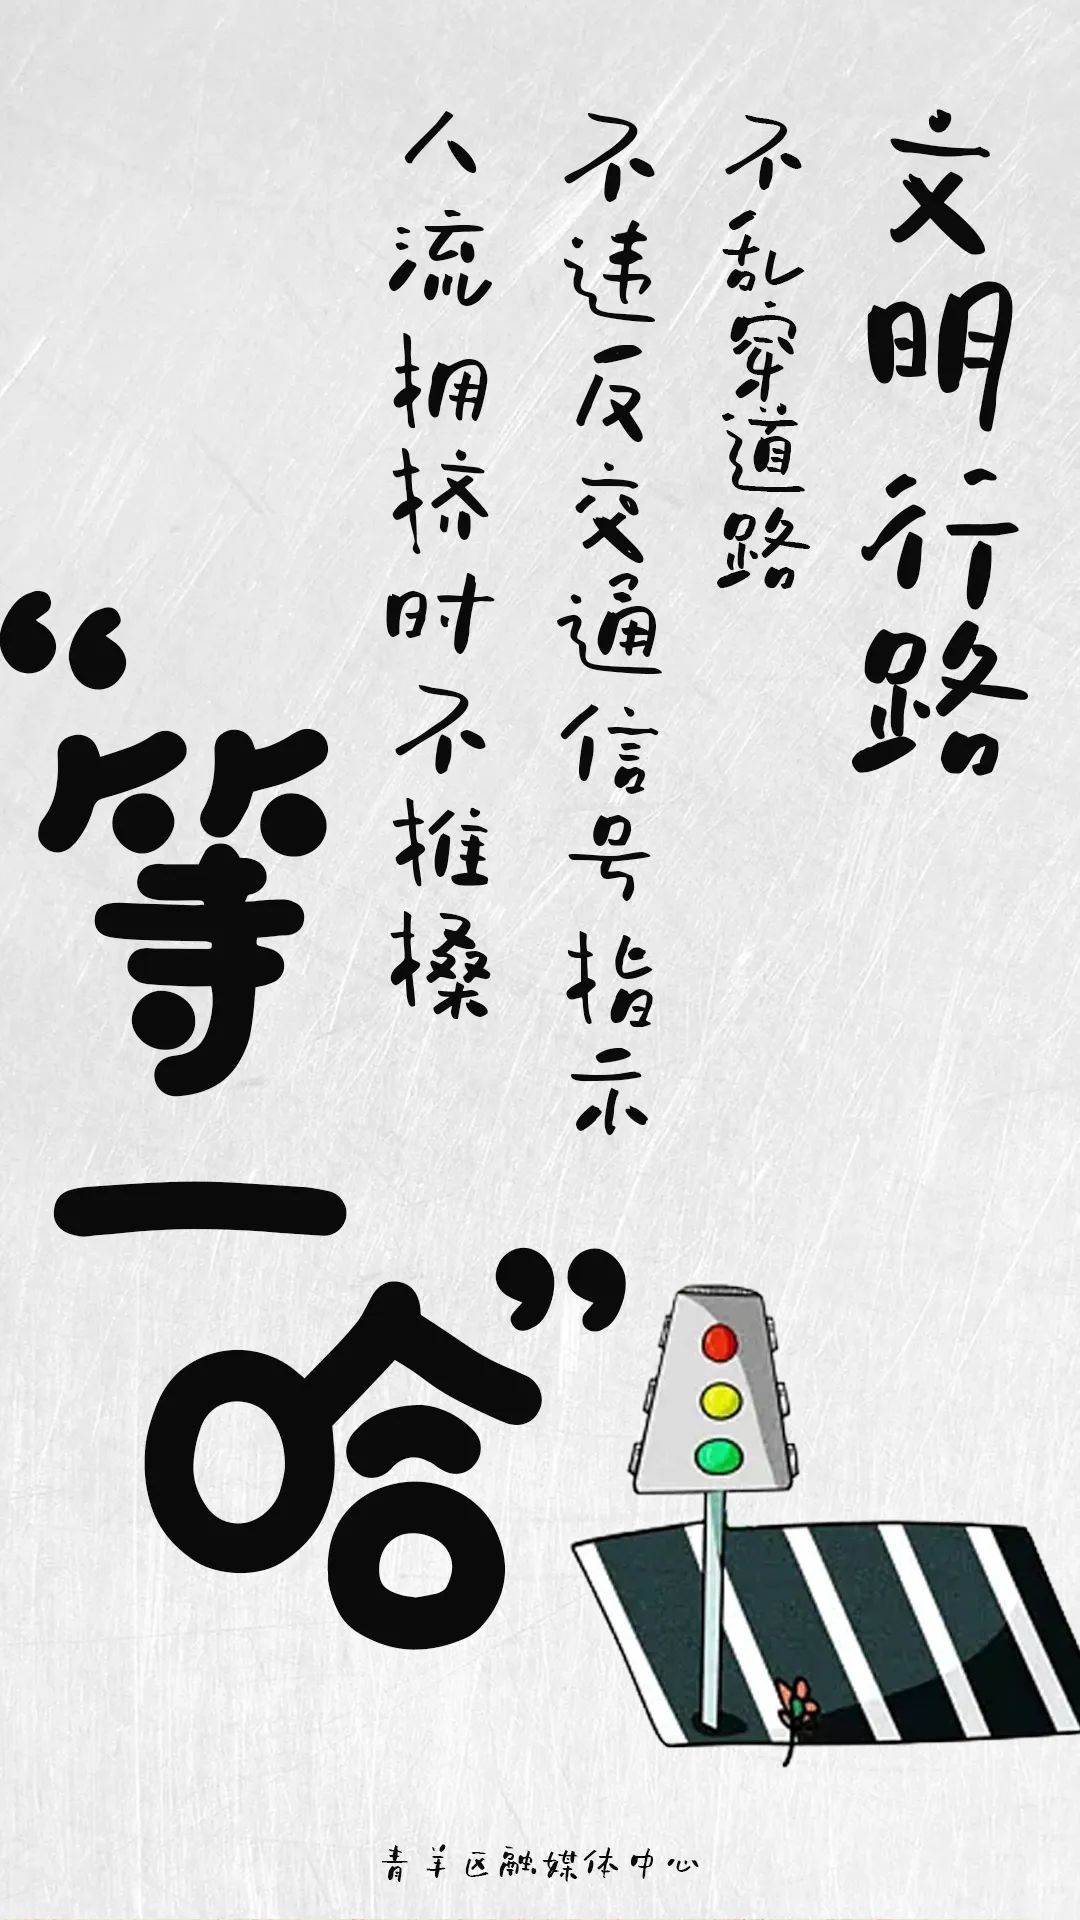 文明行路
不乱穿道路
不违反交通信号指示
人流拥挤时不推搡
“等一哈”
青羊区融媒体中心